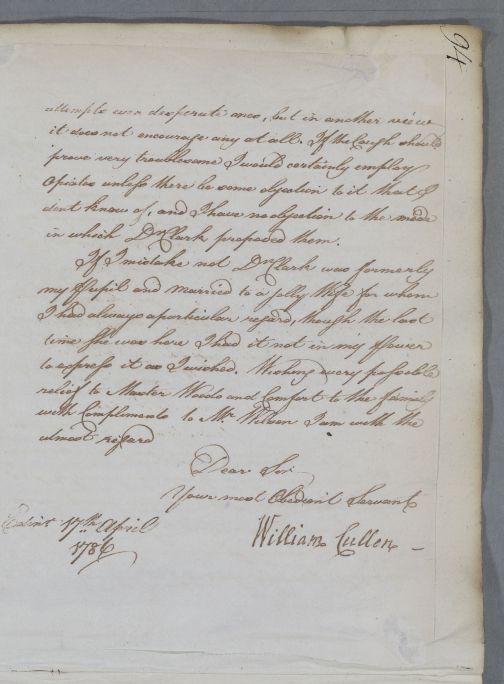 94
attempts even desperate ones, but in another view
it does not encourage any at all. If the Cough should
prove very troublesome I would certainly employ
Opiates unless there be some objection to it that I
dont know of, and I have no objection to the mode
in which Dr Clark proposed them.
If I mistake not Dr Clark was formerly
my Pupil and married to a jolly Wife for whom
I had always a particular regard, though the last
time she was here I had it not in my Power
to express it as I wished. Wishing every possible
relief to Master Woods and Comfort to the family
with Compliments to Mr. Wilson I am with the
utmost regard
Dear Sir
Your most Obedient Servant
William Cullen
Edinr 17th April
1786